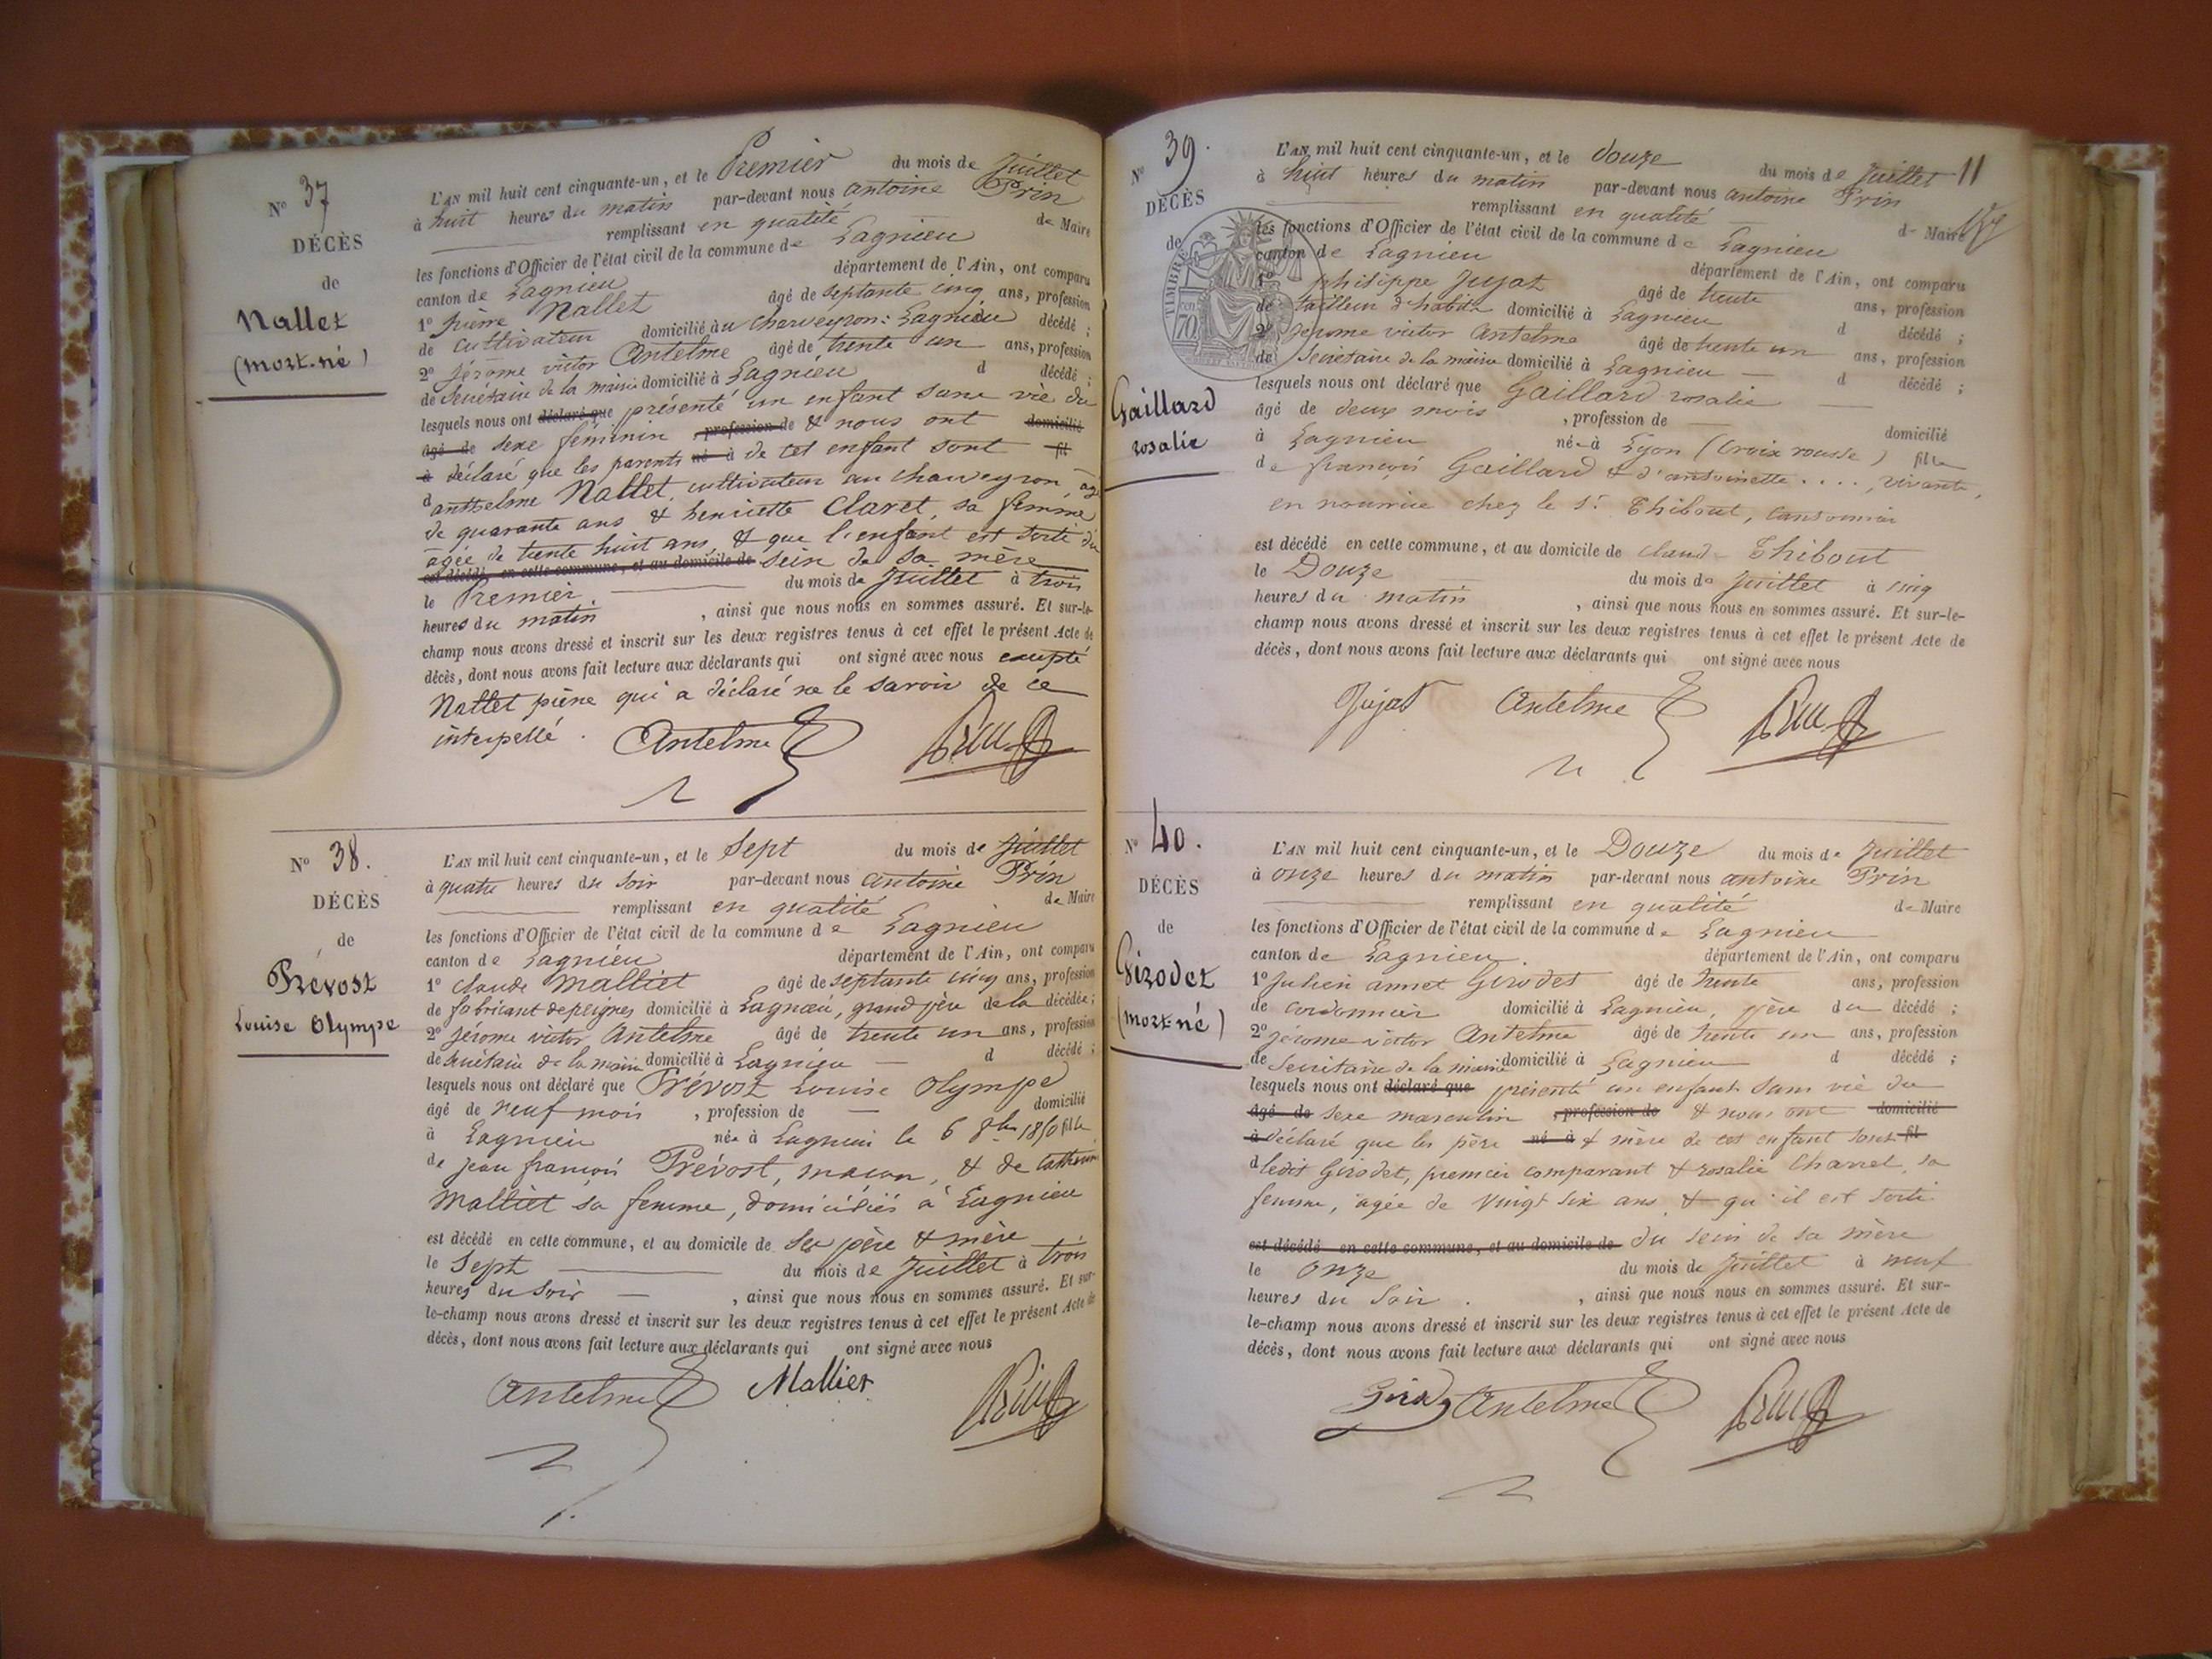 N° 37
DÉCÈS
de
Nallet
(mort-né)
L'AN mil huit cent cinquante-un, et le Premier du mois de Juillet
à huit heures du matin par-devant nous antoine Prin
remplissant en qualité de Maire
les fonctions d'Officier de l'état civil de la commune de Lagnieu
canton de Lagnieu département de l'Ain, ont comparu
1° pierre Nallet âgé de septante cinq ans, profession
de cultivateur domicilié au charveyron: Lagnieu décédé ;
2° jérome victor Antelme âgé de trente un ans, profession
de Secrétaire de la mairie domicilié à Lagnieu d décédé ;
lesquels nous ont déclaré que présenté un enfant sans vie du
âgé de sexe féminin , profession de & nous ont domicilié
à déclaré que les parents né à de cet enfant sont fil
d'anthelme Nallet, cultivateur au charveyron, agé
de quarante ans & henriette Claret, sa femme
agée de trente huit ans, & que l'enfant est sorti du
est décédé en cette commune, et au domicile de sein de sa mère
le Premier du mois de Juillet à trois
heures du matin , ainsi que nous nous en sommes assuré. Et sur-le-
champ nous avons dressé et inscrit sur les deux registres tenus à cet effet le présent Acte de
décès, dont nous avons fait lecture aux déclarants qui ont signé avec nous excepté
Nallet pierre qui a déclaré ne le savoir de ce
interpellé.
Antelme Prin
N° 38.
DÉCÈS
de
Prévost
Louise Olympe
L'AN mil huit cent cinquante-un, et le Sept du mois de Juillet
à quatre heures du soir par-devant nous antoine Prin
remplissant en qualité de Maire
les fonctions d'Officier de l'état civil de la commune de Lagnieu
canton de Lagnieu département de l'Ain, ont comparu
1° claude Malliet âgé de septante cinq ans, profession
de fabricant de peignes domicilié à Lagnieu, grand père de la décédée ;
2° jérome victor Antelme âgé de trente un ans, profession
de secrétaire de la mairie domicilié à Lagnieu d décédé ;
lesquels nous ont déclaré que Prévost Louise Olympe
âgé de neuf mois , profession de — domicilié
à Lagnieu née à Lagnieu le 6 8bre 1850 fille
de jean françois Prévost, macon, & de catherine
Malliet sa femme, domiciliés à Lagnieu
est décédé en cette commune, et au domicile de ses père & mère
le Sept du mois de Juillet à trois
heures du soir , ainsi que nous nous en sommes assuré. Et sur-
le-champ nous avons dressé et inscrit sur les deux registres tenus à cet effet le présent Acte de
décès, dont nous avons fait lecture aux déclarants qui ont signé avec nous
Antelme Mallier Prin
11
N° 39.
DÉCÈS
de
TIMBRE
70
Gaillard
rosalie
L'AN mil huit cent cinquante-un, et le douze du mois de Juillet
à huit heures du matin par-devant nous antoine Prin
remplissant en qualité de Maire
les fonctions d'Officier de l'état civil de la commune de Lagnieu
canton de Lagnieu département de l'Ain, ont comparu
1° philippe Jujat âgé de trente ans, profession
de tailleur d'habits domicilié à Lagnieu d décédé ;
2° jerome victor Antelme âgé de trente un ans, profession
de Secrétaire de la mairie domicilié à Lagnieu — d décédé ;
lesquels nous ont déclaré que Gaillard rosalie
âgé de deux mois , profession de — domicilié
à Lagnieu née à Lyon (croix rousse) fille
de françois Gaillard & d'antoinette . . . . , vivante,
en nourrice chez le Sr. Thibout,
est décédé en cette commune, et au domicile de claude Thibout
le Douze du mois de Juillet à cinq
heures du matin , ainsi que nous nous en sommes assuré. Et sur-le-
champ nous avons dressé et inscrit sur les deux registres tenus à cet effet le présent Acte de
décès, dont nous avons fait lecture aux déclarants qui ont signé avec nous
Jujat Antelme Prin
N° 40.
DÉCÈS
de
Girodet
(mort-né)
L'AN mil huit cent cinquante-un, et le Douze du mois de Juillet
à onze heures du matin par-devant nous antoine Prin
remplissant en qualité de Maire
les fonctions d'Officier de l'état civil de la commune de Lagnieu
canton de Lagnieu. département de l'Ain, ont comparu
1° Julien annet Girodet âgé de trente ans, profession
de cordonnier domicilié à Lagnieu, père du décédé ;
2° jérome victor Antelme âgé de trente un ans, profession
de Secrétaire de la mairie domicilié à Lagnieu d décédé ;
lesquels nous ont déclaré que présenté un enfant sans vie du
âgé de sexe masculin , profession de & nous ont domicilié
à déclaré que les père né à & mère de cet enfant sont fil
d ledit Girodet, premier comparant & rosalie Charret, sa
femme, agée de vingt six ans, & qu'il est sorti
est décédé en cette commune, et au domicile de du sein de sa mère
le onze du mois de Juillet à neuf
heures du soir. , ainsi que nous nous en sommes assuré. Et sur-
le-champ nous avons dressé et inscrit sur les deux registres tenus à cet effet le présent Acte de
décès, dont nous avons fait lecture aux déclarants qui ont signé avec nous
Antelme Prin